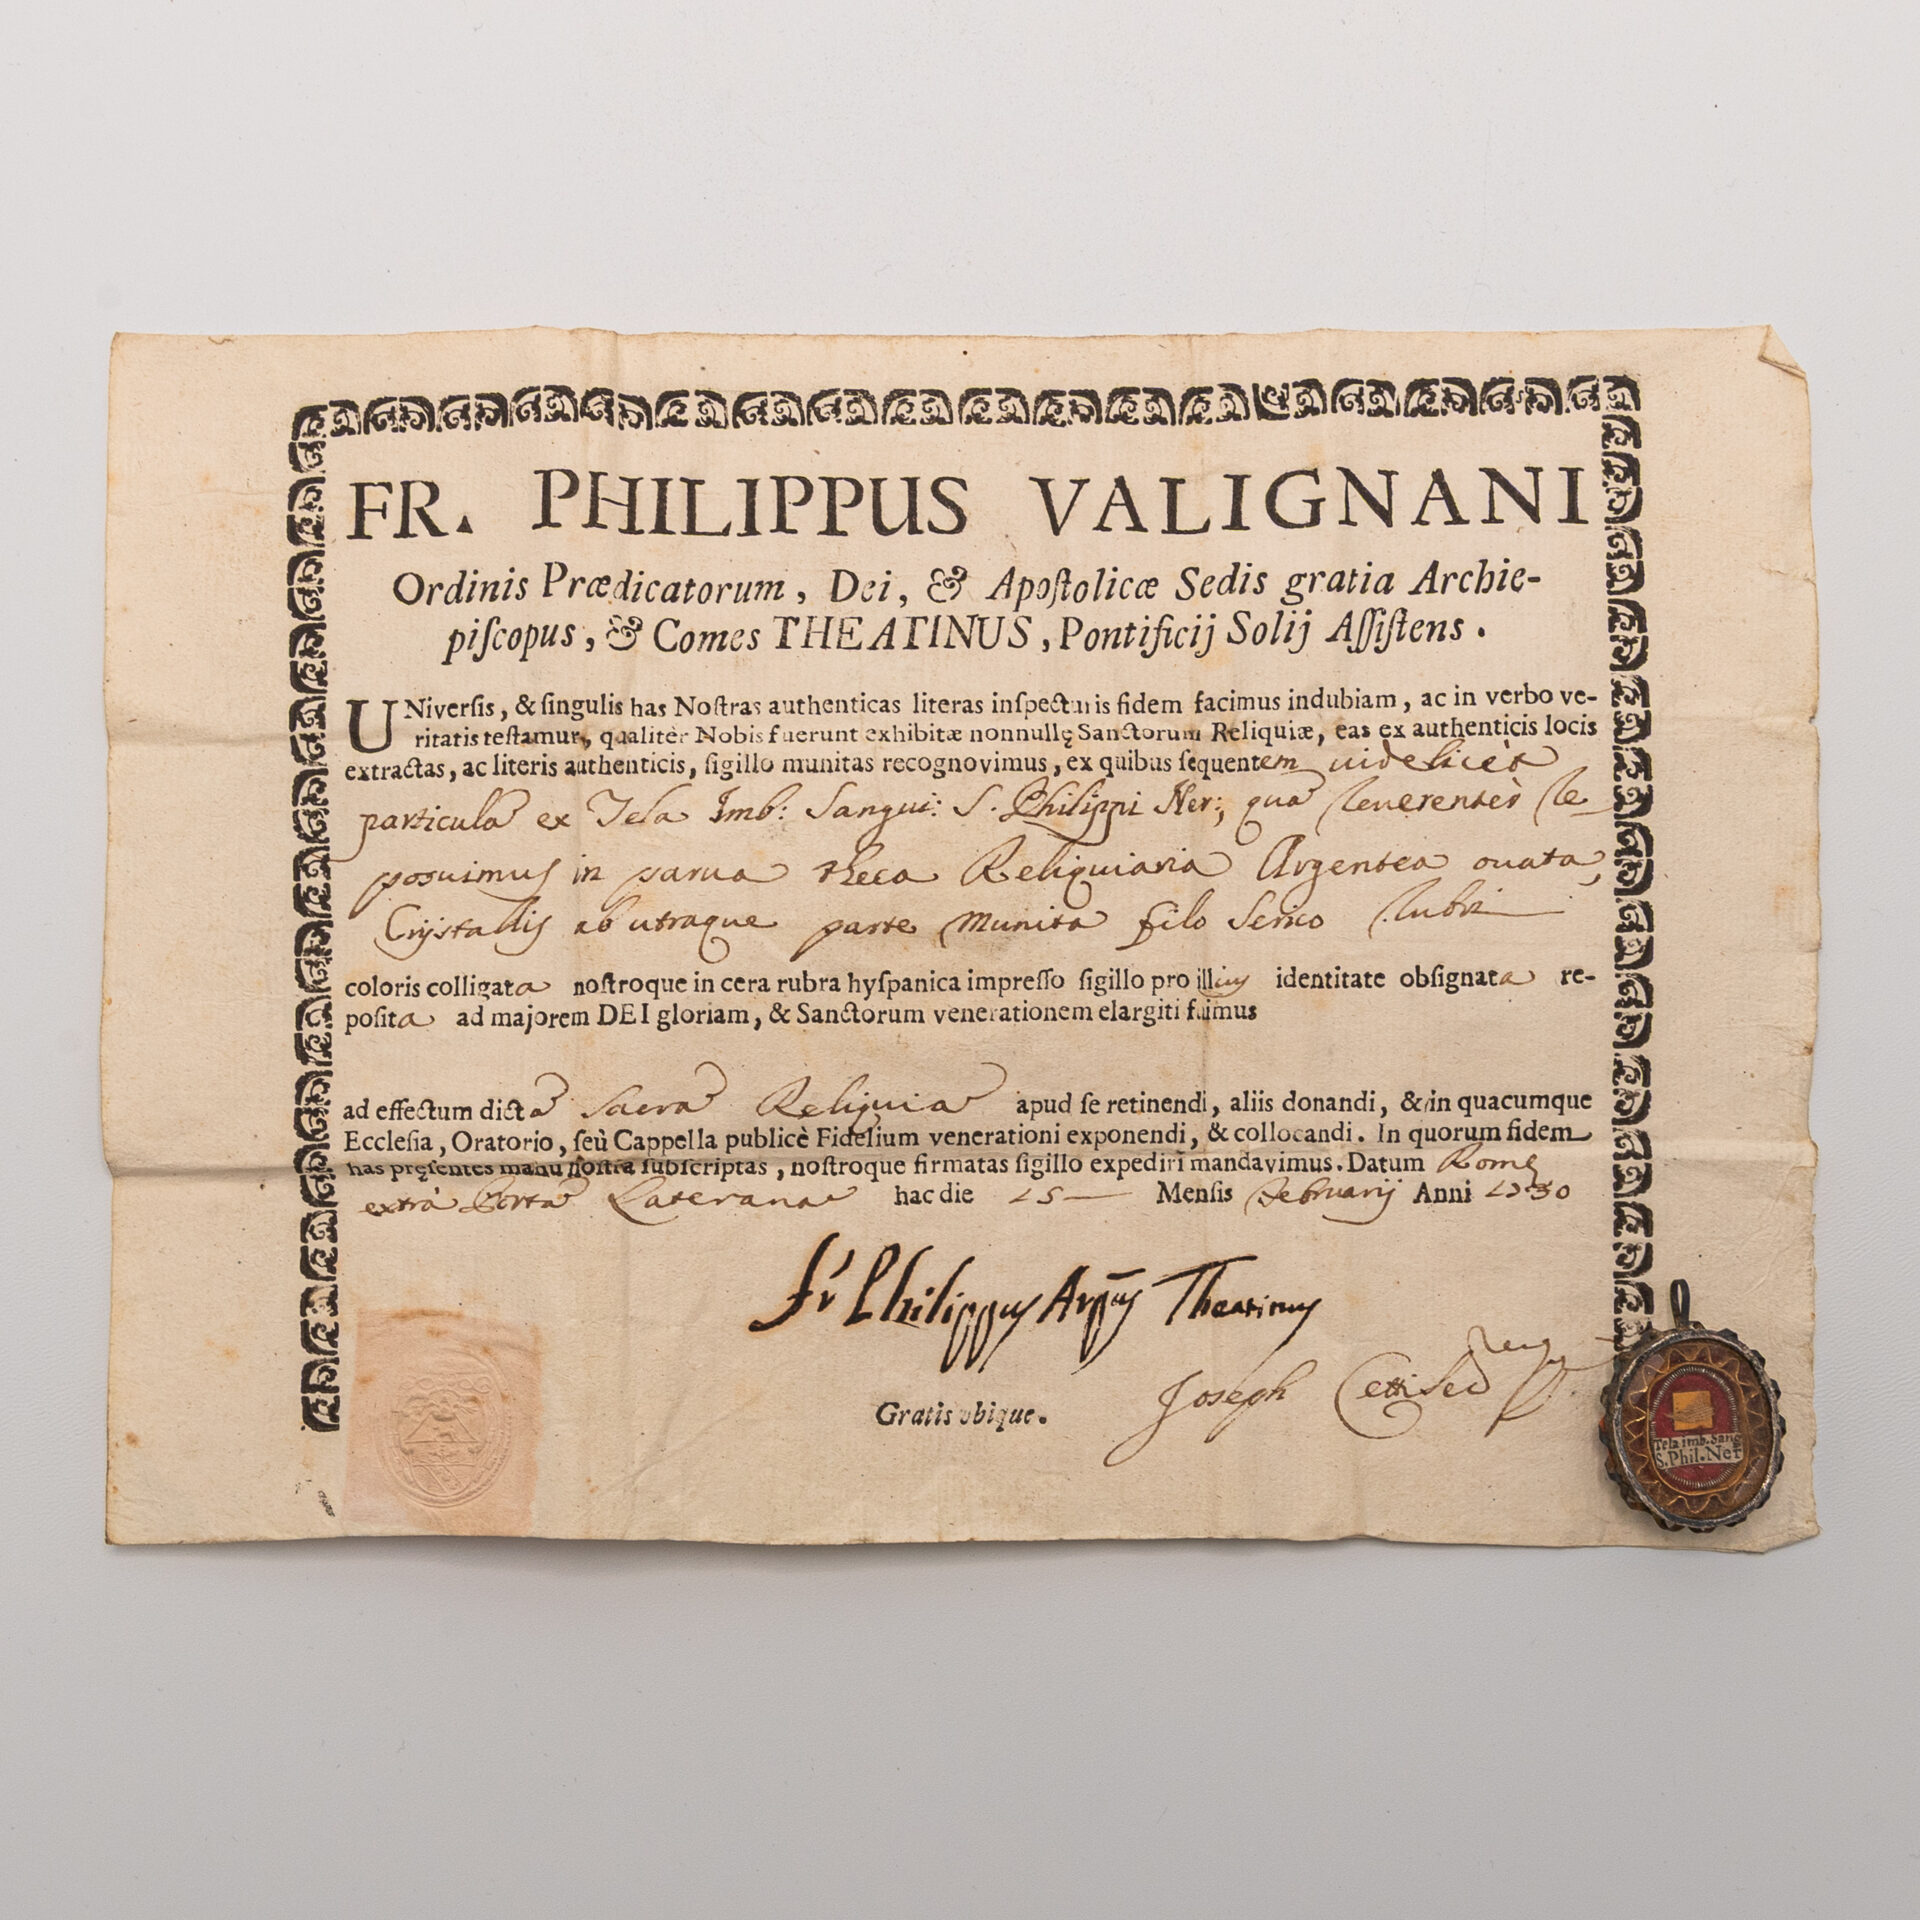 FR. PHILIPPUS VALIGNANI
Ordinis Prædicatorum, Dei, & Apoſtolicæ Sedis gratia Archie-
piſcopus, & Comes THEATINUS, Pontificij Solij Aſſiſtens.
UNiverſis, & ſingulis has Noſtras authenticas literas inſpecturis fidem facimus indubiam, ac in verbo ve-
ritatis teſtamur, qualitèr Nobis fuerunt exhibitæ nonnullę Sanctorum Reliquiæ, eas ex authenticis locis
extractas, ac literis authenticis, ſigillo munitas recognovimus, ex quibus ſequentem uidelicèt
particula ex Tela Imb: Sangui: S. Philippi Ner:, qua Reuerentèr Re-
posuimus in parua theca Reliquiaria Argentea ouata,
Crystallis ab utraque parte munita filo serico Rubri
coloris colligata noſtroque in cera rubra hyſpanica impreſſo ſigillo pro illius identitate obſignata re-
poſita ad majorem DEI gloriam, & Sanctorum venerationem elargiti fuimus
ad effectum dicta Sacra Reliquia apud ſe retinendi, aliis donandi, & in quacumque
Eccleſia, Oratorio, ſeù Cappella publicè Fidelium venerationi exponendi, & collocandi. In quorum fidem
has pręſentes manu noſtra ſubſcriptas, noſtroque firmatas ſigillo expediri mandavimus. Datum Romę
extrà Porta Laterana hac die 15 Menſis Februarij Anni 1730
Fr Philippus Arpus Theatinus
Gratis ubique.
Joseph
Tela imb. Sang
S. Phil. Ner